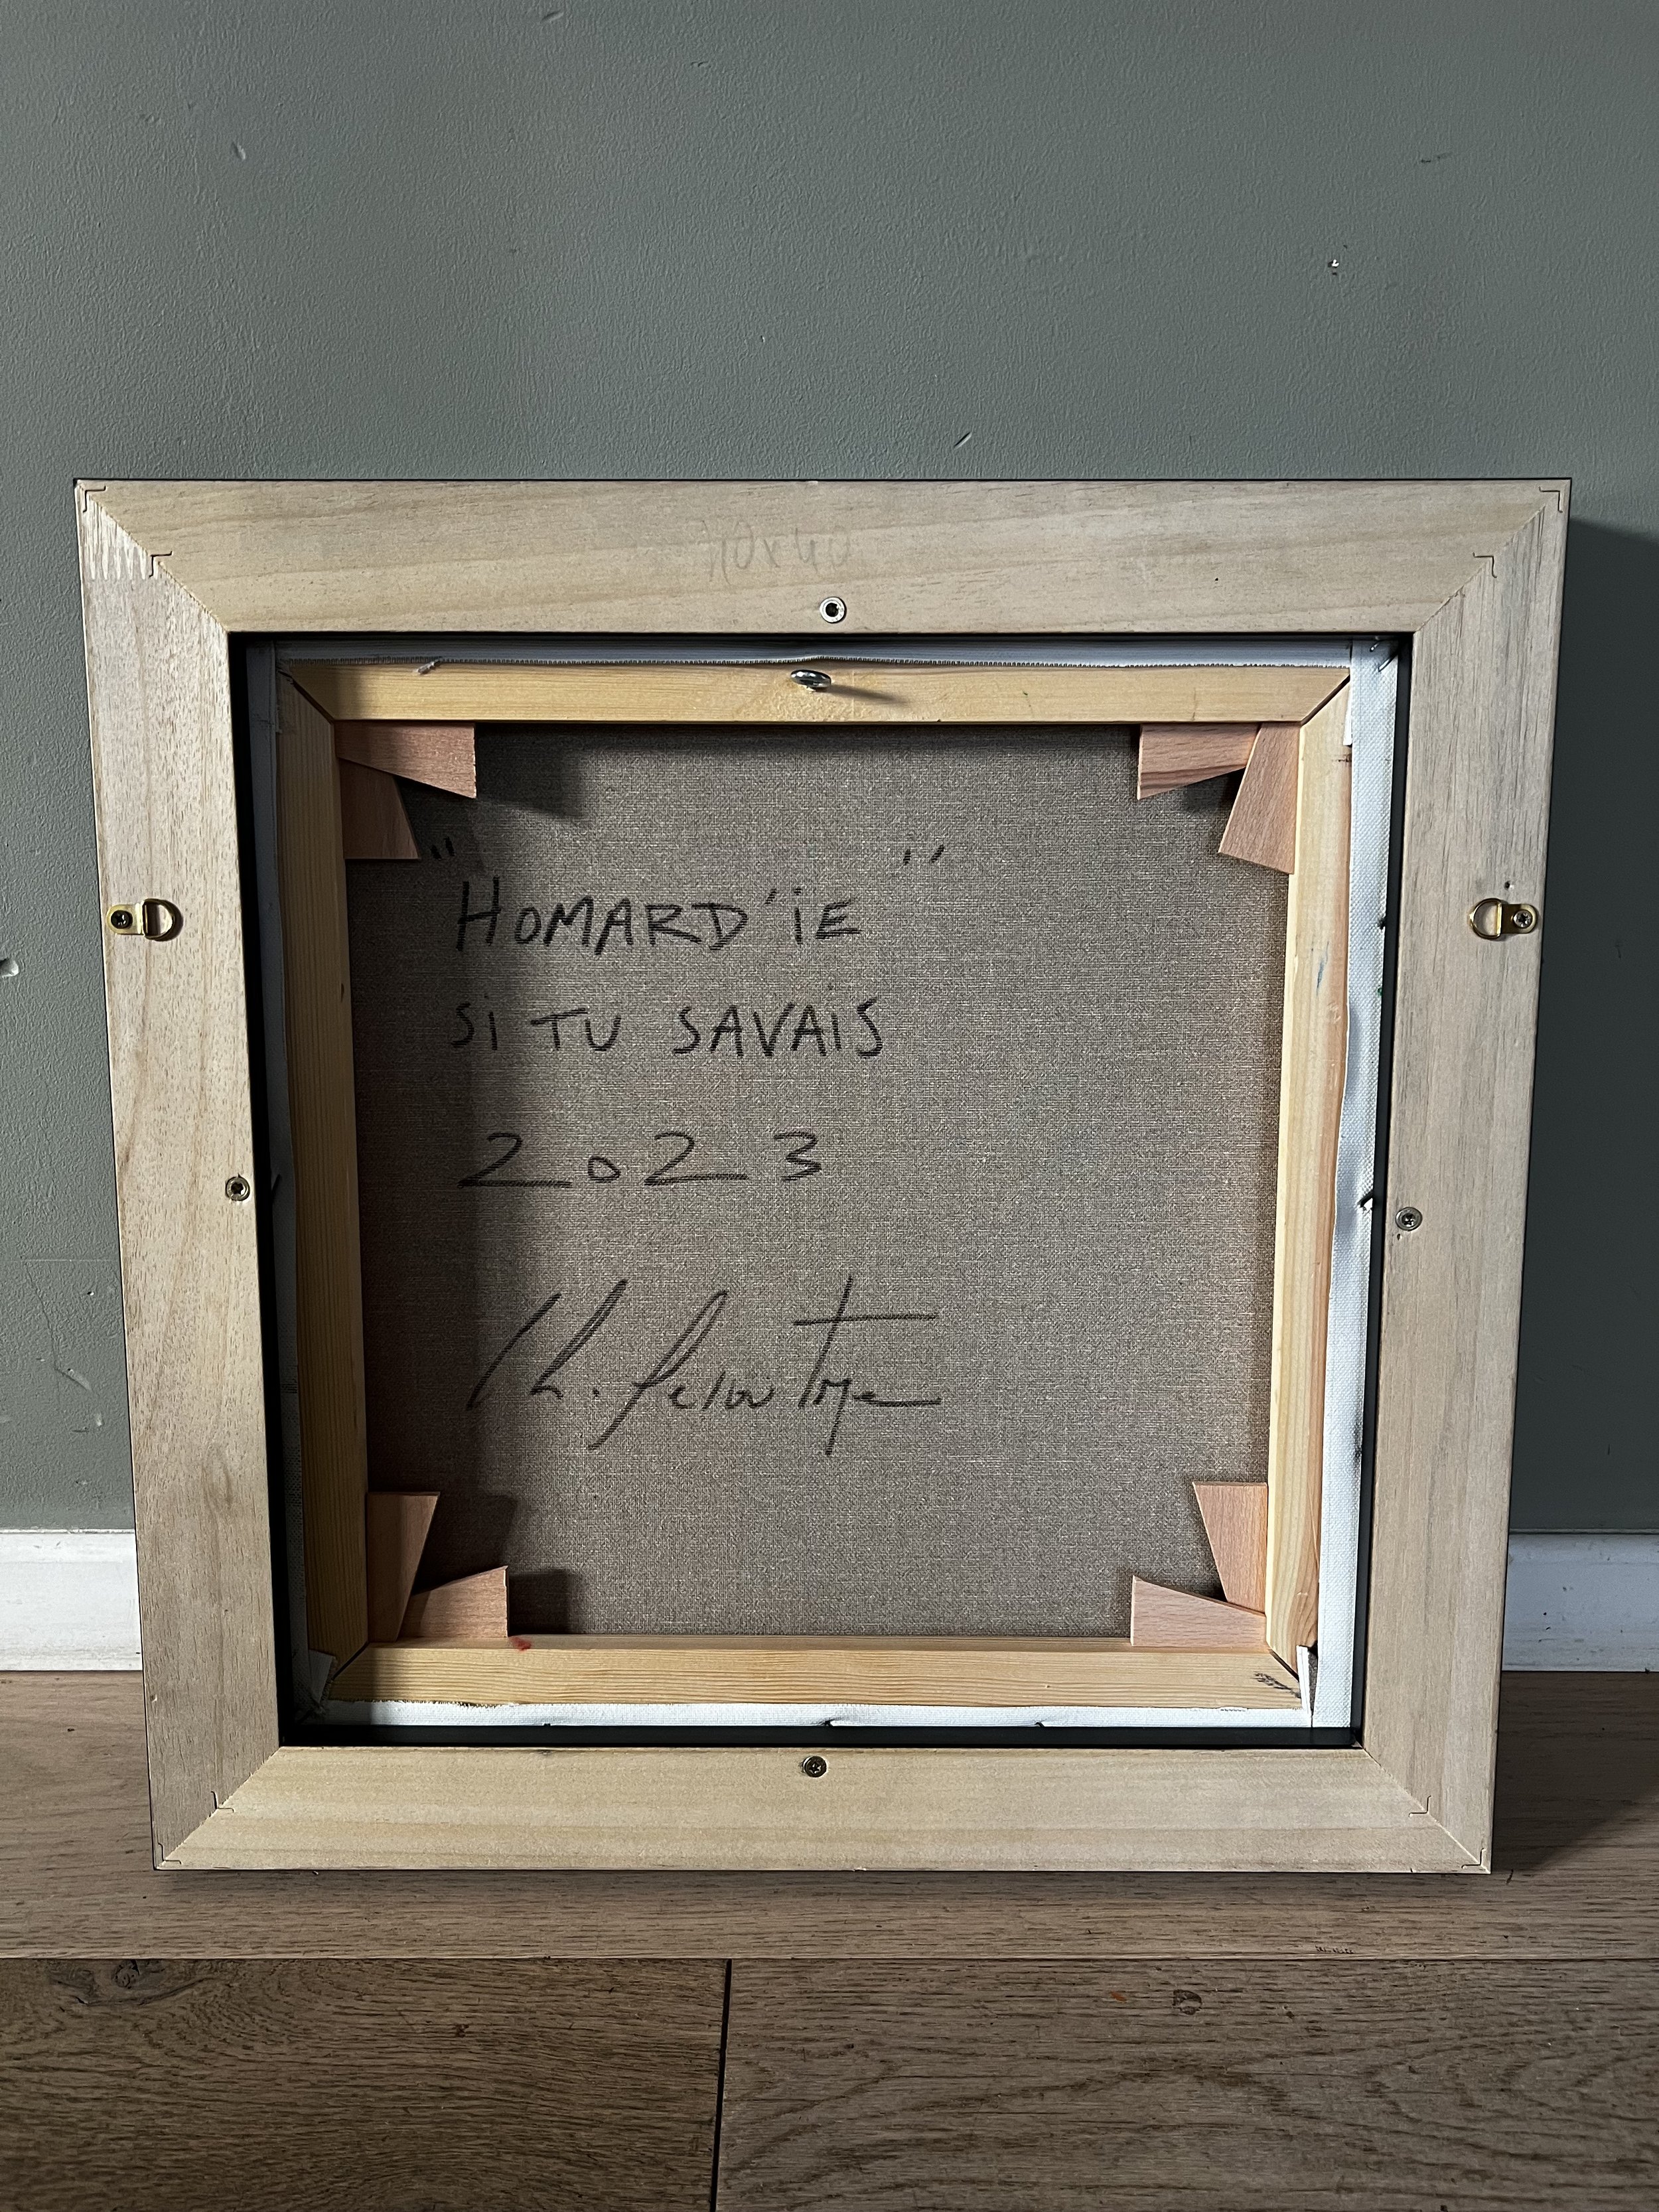 40x40
" "
HOMARD'iE
Si TU SAVAiS
2023
Ch.